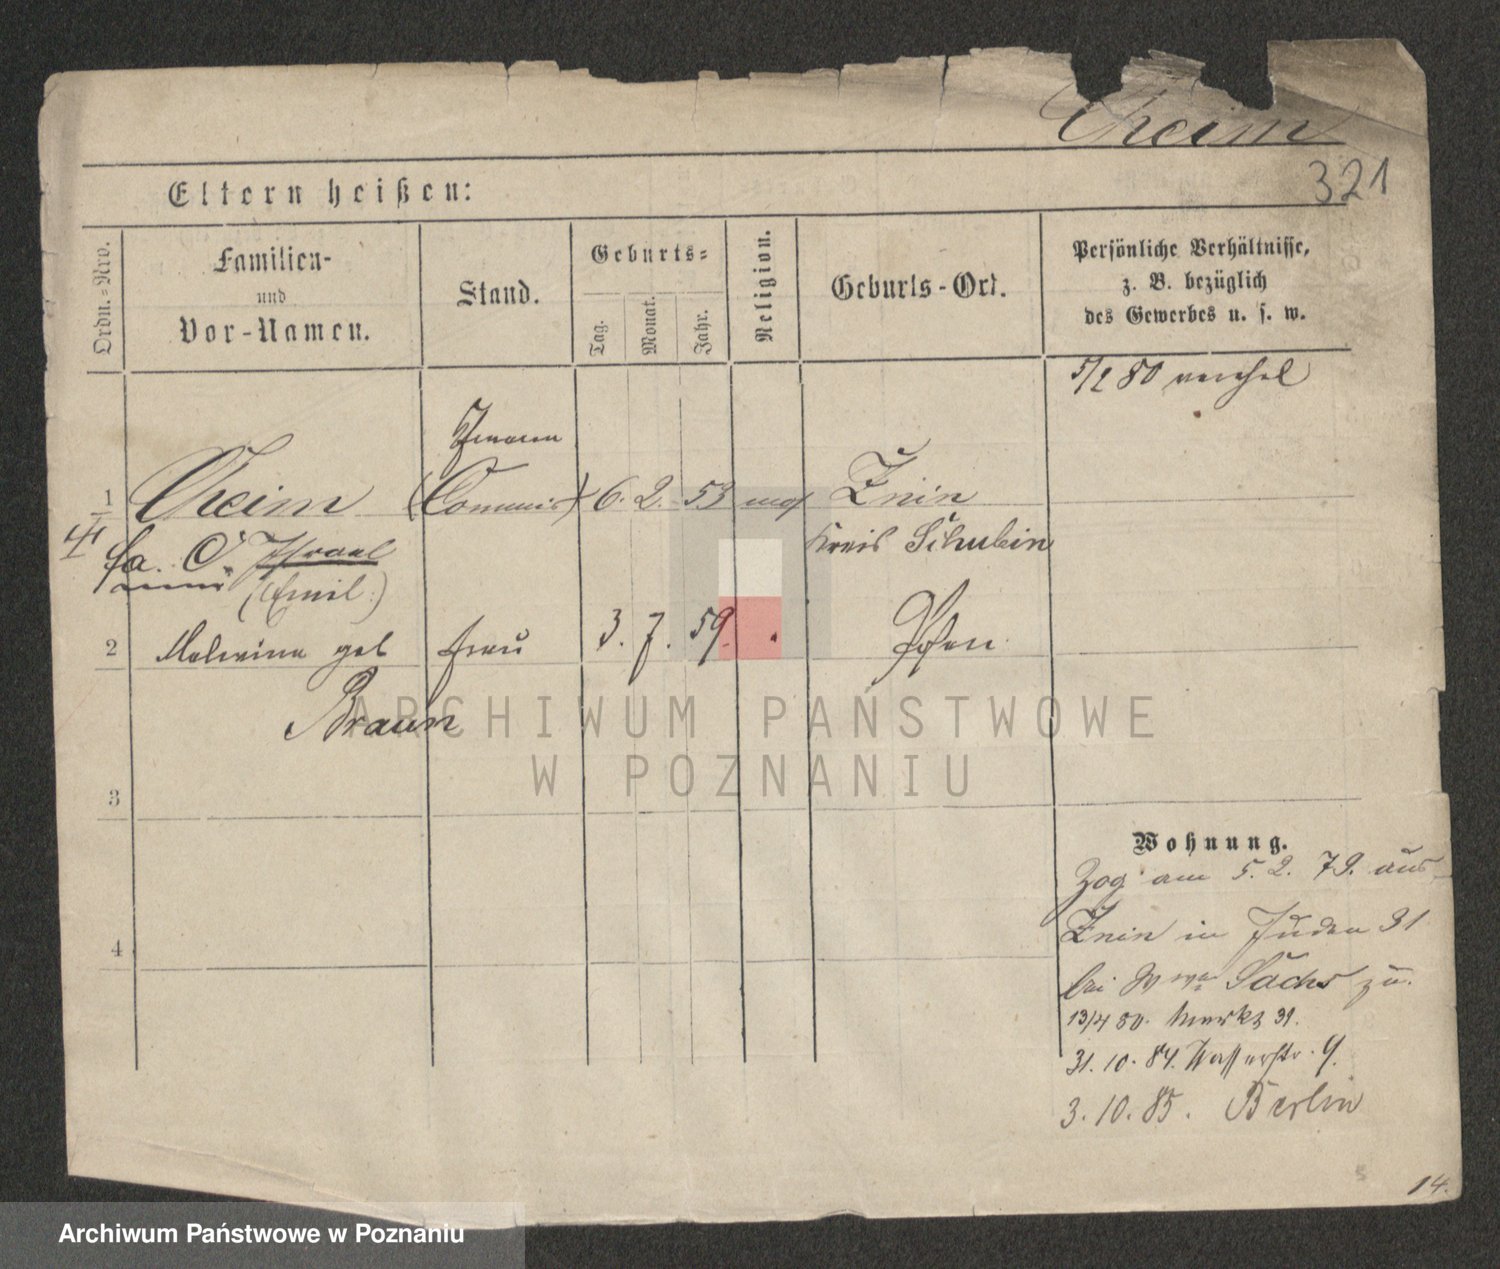 Cheim
321
Eltern heißen:
Ordn.-Nro.
Familien-
und
Vor-Namen.
Stand.
Geburts-
Tag.
Monat.
Jahr.
Religion.
Geburts-Ort.
Persönliche Verhältnisse,
z. B. bezüglich
des Gewerbes u. s. w.
5/2 80
1 Cheim (Commis) 6. 2. 53 mos Znin
Kreis Schubin
Israel
(Emil)
2 Malwina geb Frau 3. 7. 59. Posen
Braun
3
4
Wohnung.
Zog am 5. 2. 79. aus
Znin in Juden 31
bei Wwe Sachs zu.
13/4 80. Markt 31.
31. 10. 84. Wasserstr. 9.
3. 10. 85. Berlin
14.
ARCHIWUM PAŃSTWOWE
W POZNANIU
Archiwum Państwowe w Poznaniu